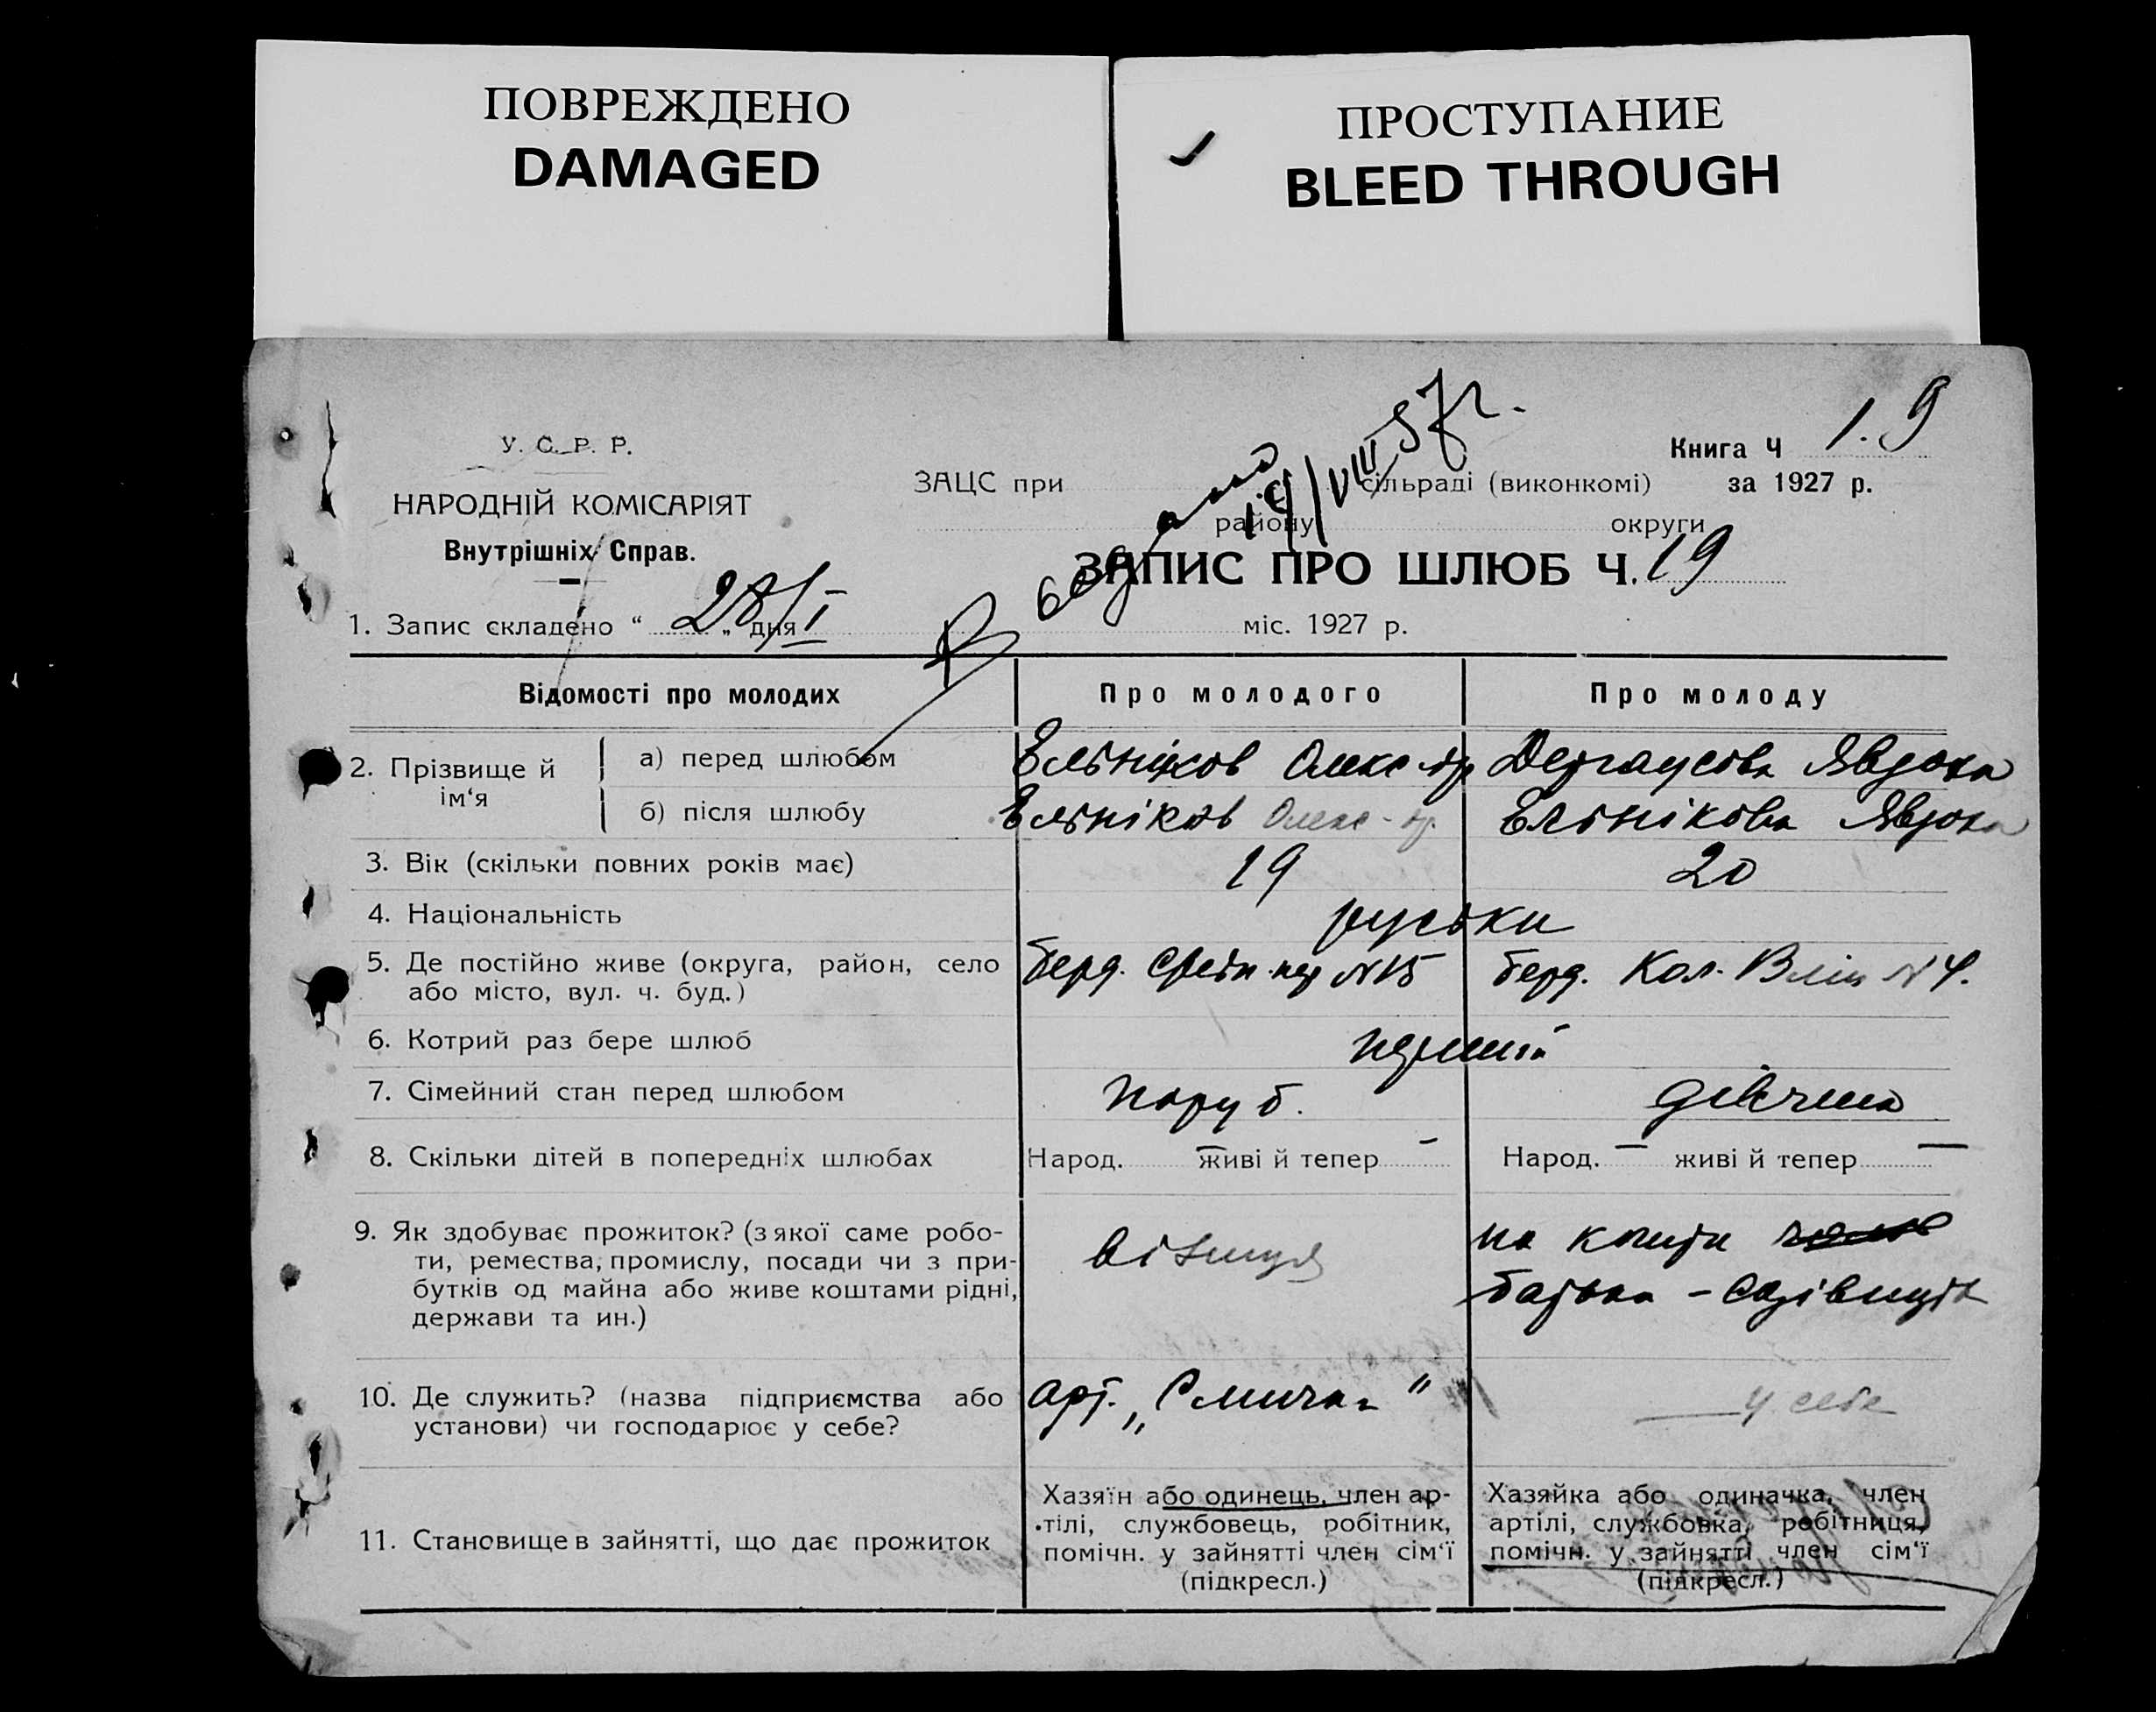 ПОВРЕЖДЕНО
DAMAGED
ПРОСТУПАНИЕ
BLEED THROUGH
У. С. Р. Р.
НАРОДНІЙ КОМІСАРІЯТ
Внутрішніх Справ.
Книга Ч 1. 9
ЗАЦС при сільраді (виконкомі) за 1927 р.
району округи
19/VIII 57г.
ЗАПИС ПРО ШЛЮБ Ч. 19
1. Запис складено “ 28/I „ дня міс. 1927 р.
Відомості про молодих
Про молодого
Про молоду
2. Прізвище й ім‘я
а) перед шлюбом
Ельніков Олекс-др
Явдоха
б) після шлюбу
Ельніков Олекс-др.
Ельнікова Явдоха
3. Вік (скільки повних років має)
19
20
4. Національність
руськи
5. Де постійно живе (округа, район, село
або місто, вул. ч. буд.)
берд. №15
берд. Кол. №4.
6. Котрий раз бере шлюб
перший
7. Сімейний стан перед шлюбом
паруб.
дівчина
8. Скільки дітей в попередніх шлюбах
Народ. — живі й тепер —
Народ. — живі й тепер —
9. Як здобуває прожиток? (з якої саме робо-
ти, ремества, промислу, посади чи з при-
бутків од майна або живе коштами рідні,
держави та ин.)
візниця
на кошти
батька –
10. Де служить? (назва підприємства або
установи) чи господарює у себе?
арт. „Смичка“
у себе
11. Становище в зайнятті, що дає прожиток
Хазяїн або одинець, член ар-
тілі, службовець, робітник,
помічн. у зайнятті член сім‘ї
(підкресл.)
Хазяйка або одиначка, член
артілі, службовка, робітниця,
помічн. у зайнятті член сім‘ї
(підкресл.)